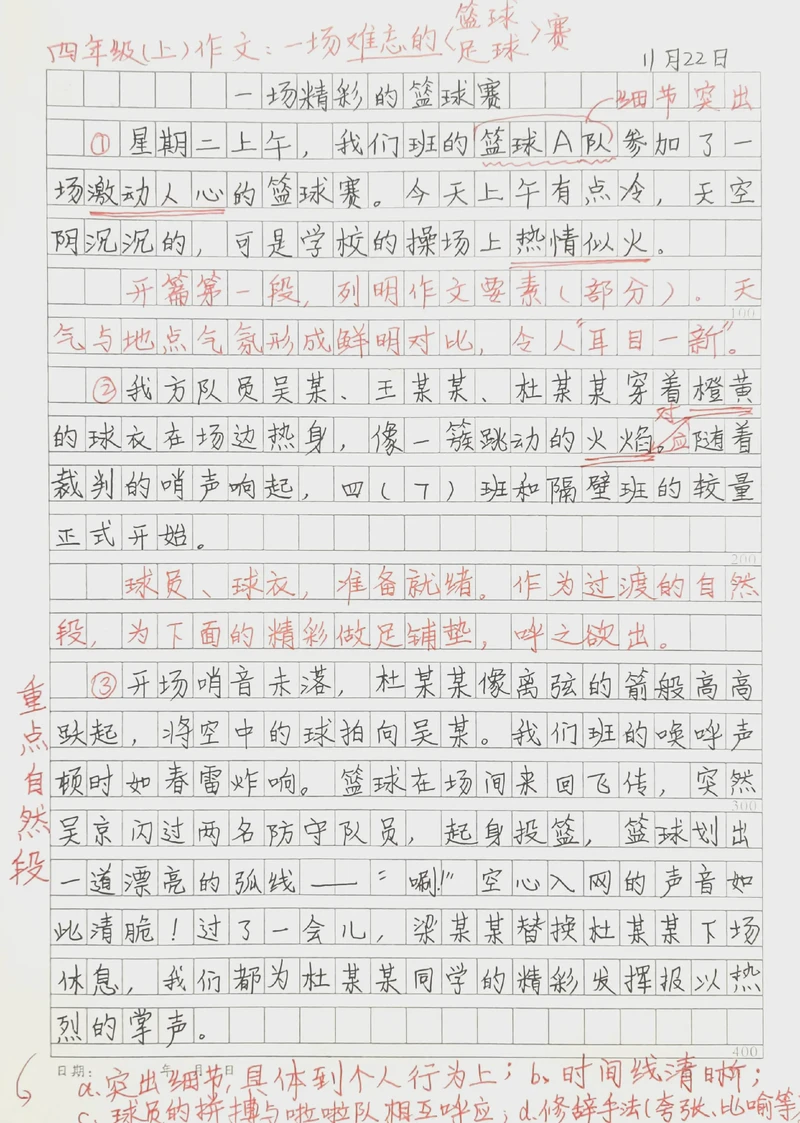 四年级(上)作文:一场难忘的〈篮球 足球〉赛
11月22日
一场精彩的篮球赛
细节突出
①星期二上午,我们班的篮球A队参加了一
场激动人心的篮球赛。今天上午有点冷,天空
阴沉沉的,可是学校的操场上热情似火。
开篇第一段,列明作文要素(部分)。天
100
气与地点气氛形成鲜明对比,令人"耳目一新"。
②我方队员吴某、王某某、杜某某穿着橙黄
对应
的球衣在场边热身,像一簇跳动的火焰。随着
裁判的哨声响起,四(7)班和隔壁班的较量
正式开始。
200
球员、球衣,准备就绪。作为过渡的自然
段,为下面的精彩做足铺垫,呼之欲出。
重点自然段
③开场哨音未落,杜某某像离弦的箭般高高
跃起,将空中的球拍向吴某。我们班的唤呼声
顿时如春雷炸响。篮球在场间来回飞传,突然
300
吴京闪过两名防守队员,起身投篮,篮球划出
一道漂亮的弧线——"唰!"空心入网的声音如
此清脆!过了一会儿,梁某某替换杜某某下场
休息,我们都为杜某某同学的精彩发挥报以热
烈的掌声。
400
日期: 年 月 日
a.突出细节,具体到个人行为上;b.时间线清晰;
c.球员的拼搏与啦啦队相互呼应;d.修辞手法(夸张、比喻等